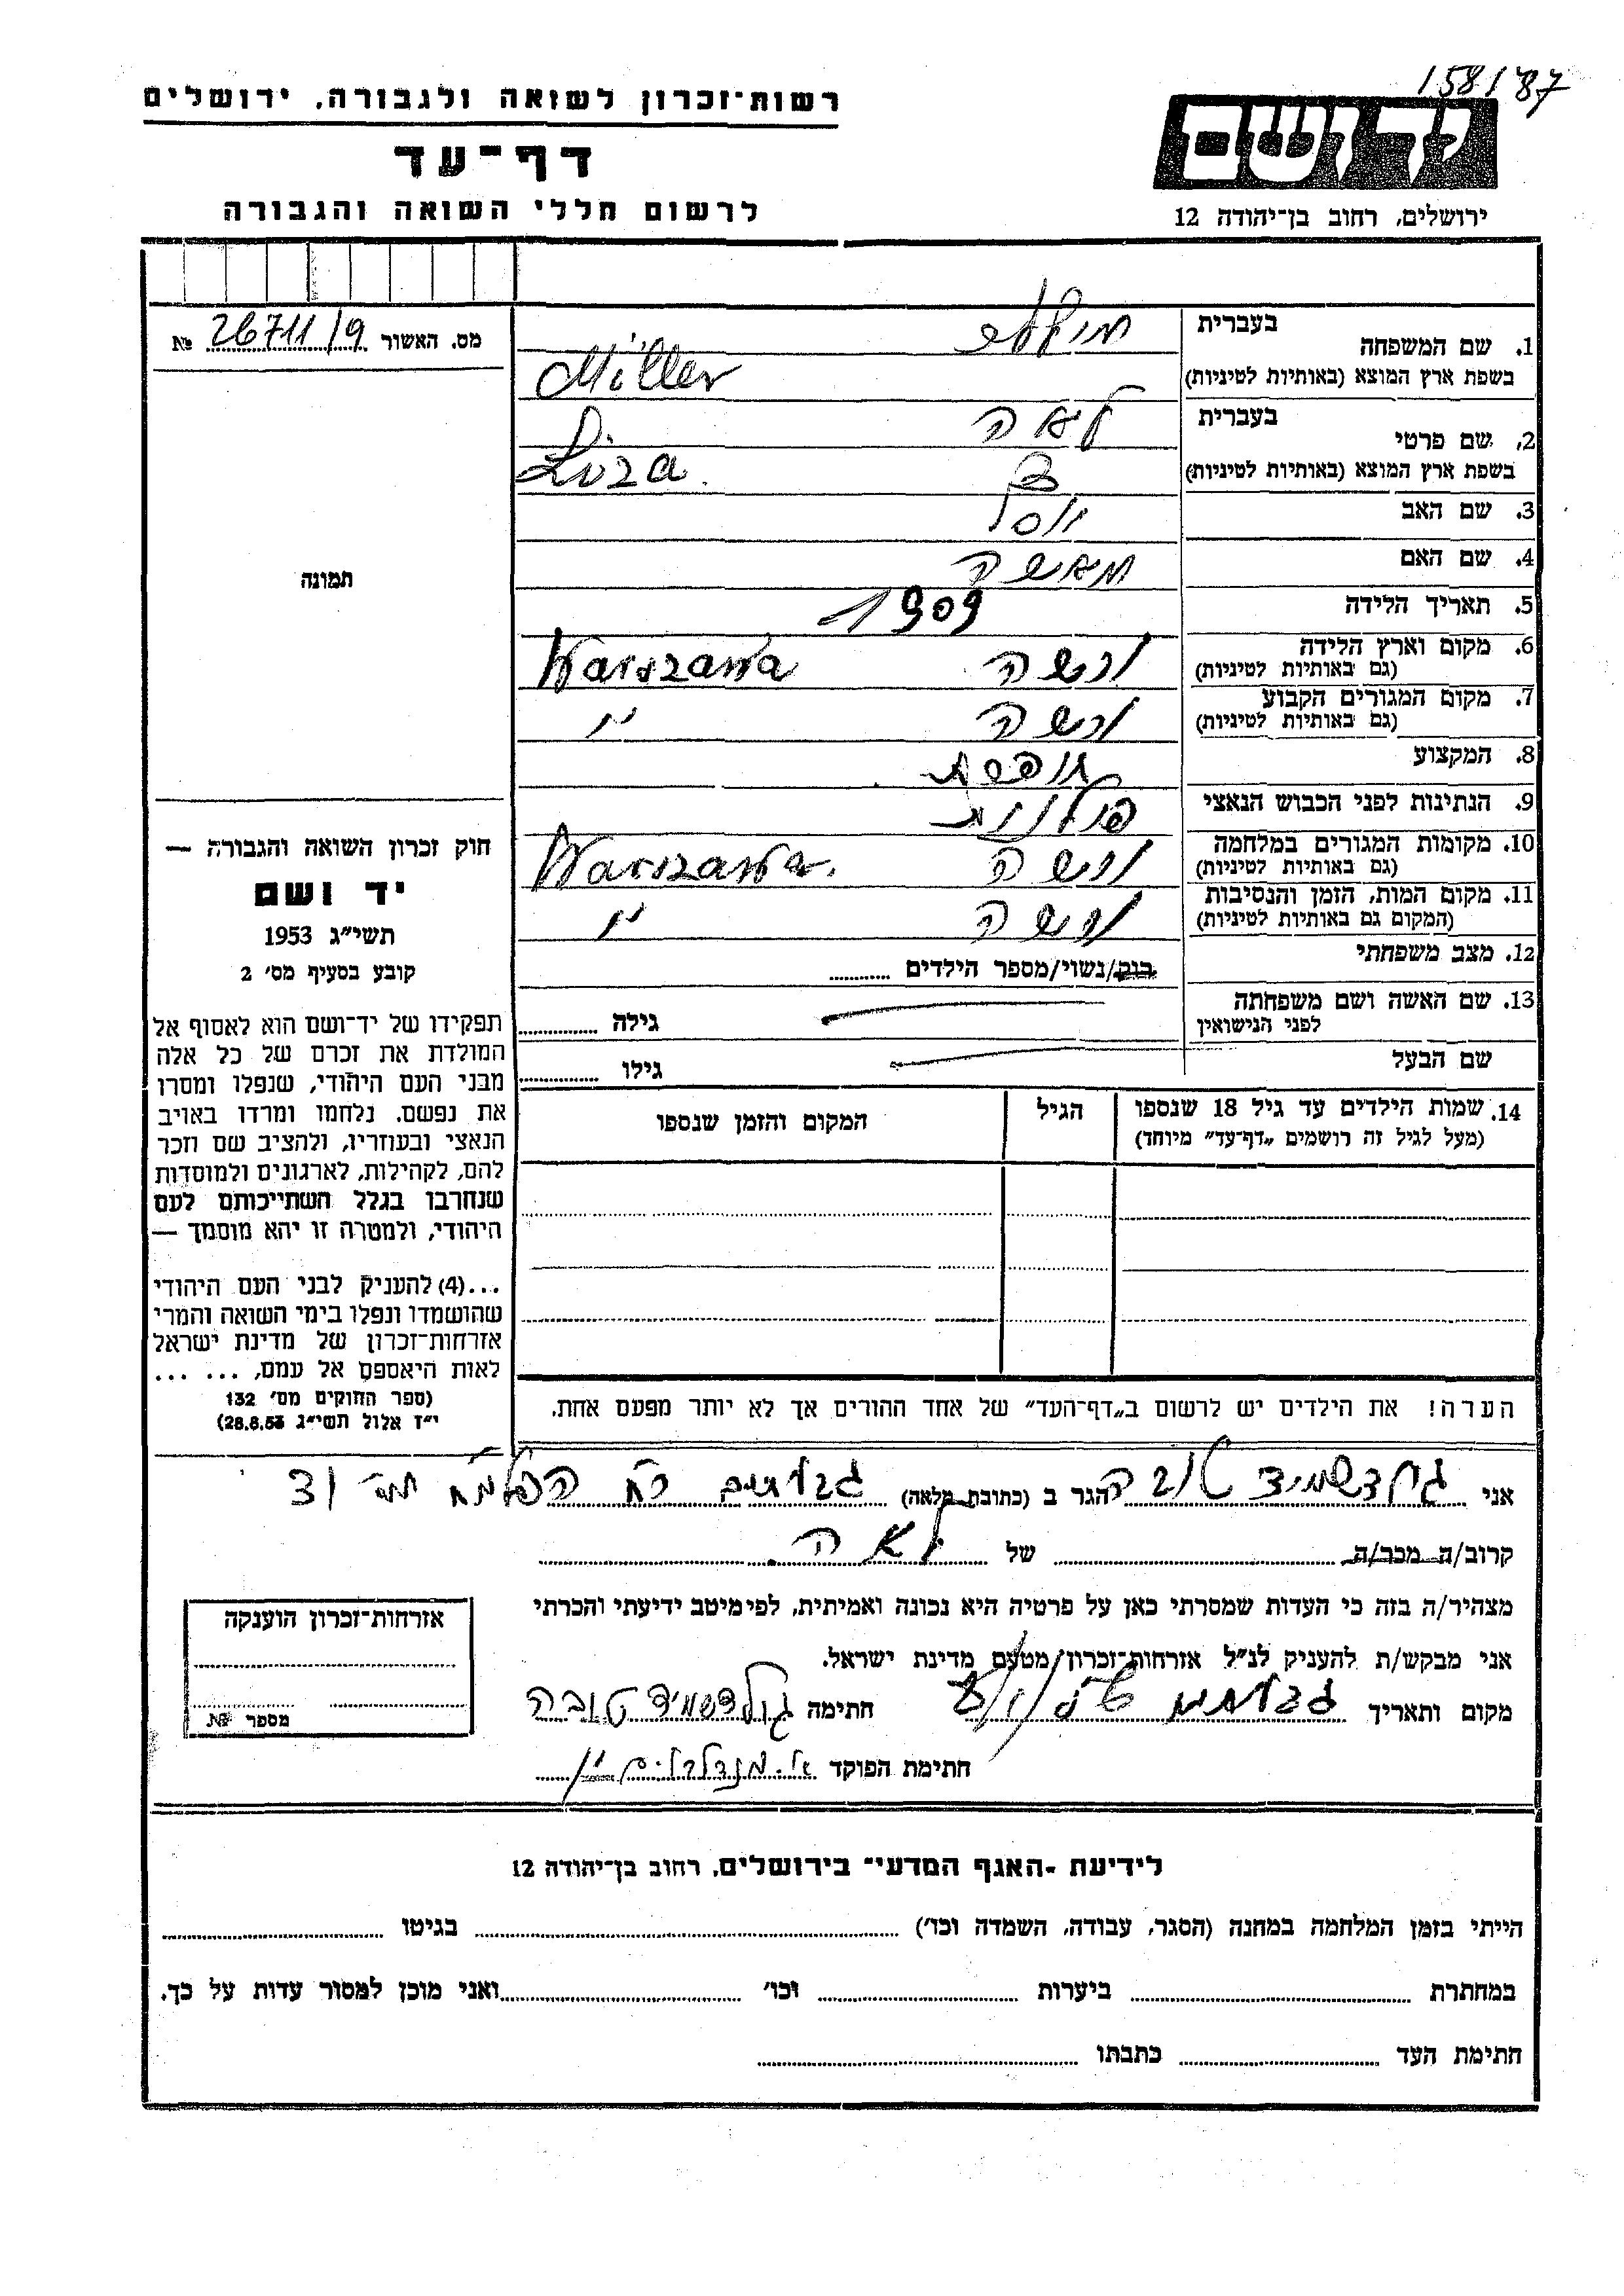 158187
רשות־זכרון לשואה ולגבורה, ירושלים
דף־עד
לרשום חללי השואה והגבורה
יד ושם
ירושלים, רחוב בן־יהודה 12
מס. האשור 26711/9 №
תמונה
חוק זכרון השואה והגבורה —
יד ושם
תשי״ג 1953
קובע בסעיף מס׳ 2
תפקידו של יד־ושם הוא לאסוף אל
המולדת את זכרם של כל אלה
מבני העם היהודי, שנפלו ומסרו
את נפשם, נלחמו ומרדו באויב
הנאצי ובעוזריו, ולהציב שם וזכר
להם, לקהילות, לארגונים ולמוסדות
שנחרבו בגלל השתייכותם לעם
היהודי, ולמטרה זו יהא מוסמך —
...(4) להעניק לבני העם היהודי
שהושמדו ונפלו בימי השואה והמרי
אזרחות־זכרון של מדינת ישראל
לאות היאספם אל עמם, ... ...
(ספר החוקים מס׳ 132
י״ז אלול תשי״ג 28.8.53)
1. שם המשפחה בעברית מילער
בשפת ארץ המוצא (באותיות לטיניות) Miller
2. שם פרטי בעברית לאה
בשפת ארץ המוצא (באותיות לטיניות) Luza
3. שם האב יוסל
4. שם האם מאשה
5. תאריך הלידה 1909
6. מקום וארץ הלידה (גם באותיות לטיניות) ורשה Warszawa
7. מקום המגורים הקבוע (גם באותיות לטיניות) ורשה ״
8. המקצוע תופרת
9. הנתינות לפני הכבוש הנאצי פולנית
10. מקומות המגורים במלחמה (גם באותיות לטיניות) ורשה Warszawa.
11. מקום המות, הזמן והנסיבות (המקום גם באותיות לטיניות) ורשה ״
12. מצב משפחתי רווק/נשוי/מספר הילדים
13. שם האשה ושם משפחתה לפני הנישואין גילה
שם הבעל גילו
14. שמות הילדים עד גיל 18 שנספו הגיל המקום והזמן שנספו
(מעל לגיל זה רושמים „דף־עד״ מיוחד)
הערה! את הילדים יש לרשום ב„דף־העד״ של אחד ההורים אך לא יותר מפעם אחת.
אני גולדשמיד טובה הגר ב (כתובת מלאה) גבעתיים רח הפלמ״ח
קרוב/ה מכר/ה של לאה
מצהיר/ה בזה כי העדות שמסרתי כאן על פרטיה היא נכונה ואמיתית, לפי מיטב ידיעתי והכרתי
אני מבקש/ת להעניק לנ״ל אזרחות־זכרון מטעם מדינת ישראל.
מקום ותאריך חתימה גולדשמיד טובה
חתימת הפוקד
אזרחות־זכרון הוענקה
מספר №
לידיעת ־האגף המדעי־ בירושלים, רחוב בן־יהודה 12
הייתי בזמן המלחמה במחנה (הסגר, עבודה, השמדה וכו׳) בגיטו
במחתרת ביערות וכו׳ ואני מוכן למסור עדות על כך.
חתימת העד כתבתו